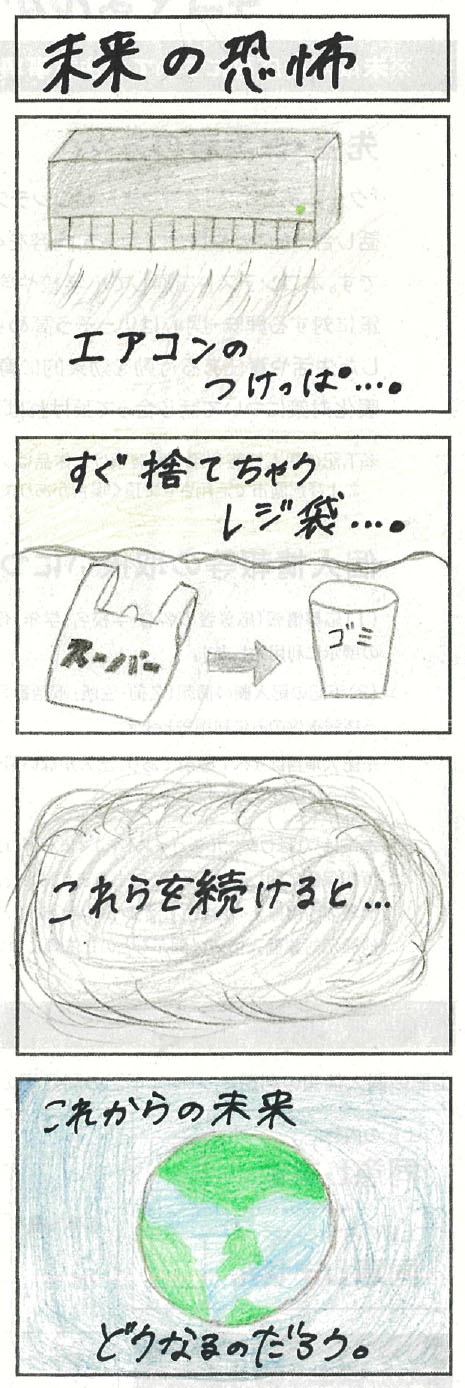 未来の恐怖
エアコンの
つけっぱ…。
すぐ捨てちゃう
レジ袋…。
スーパー
ゴミ
これらを続けると…
これからの未来
どうなるのだろう。